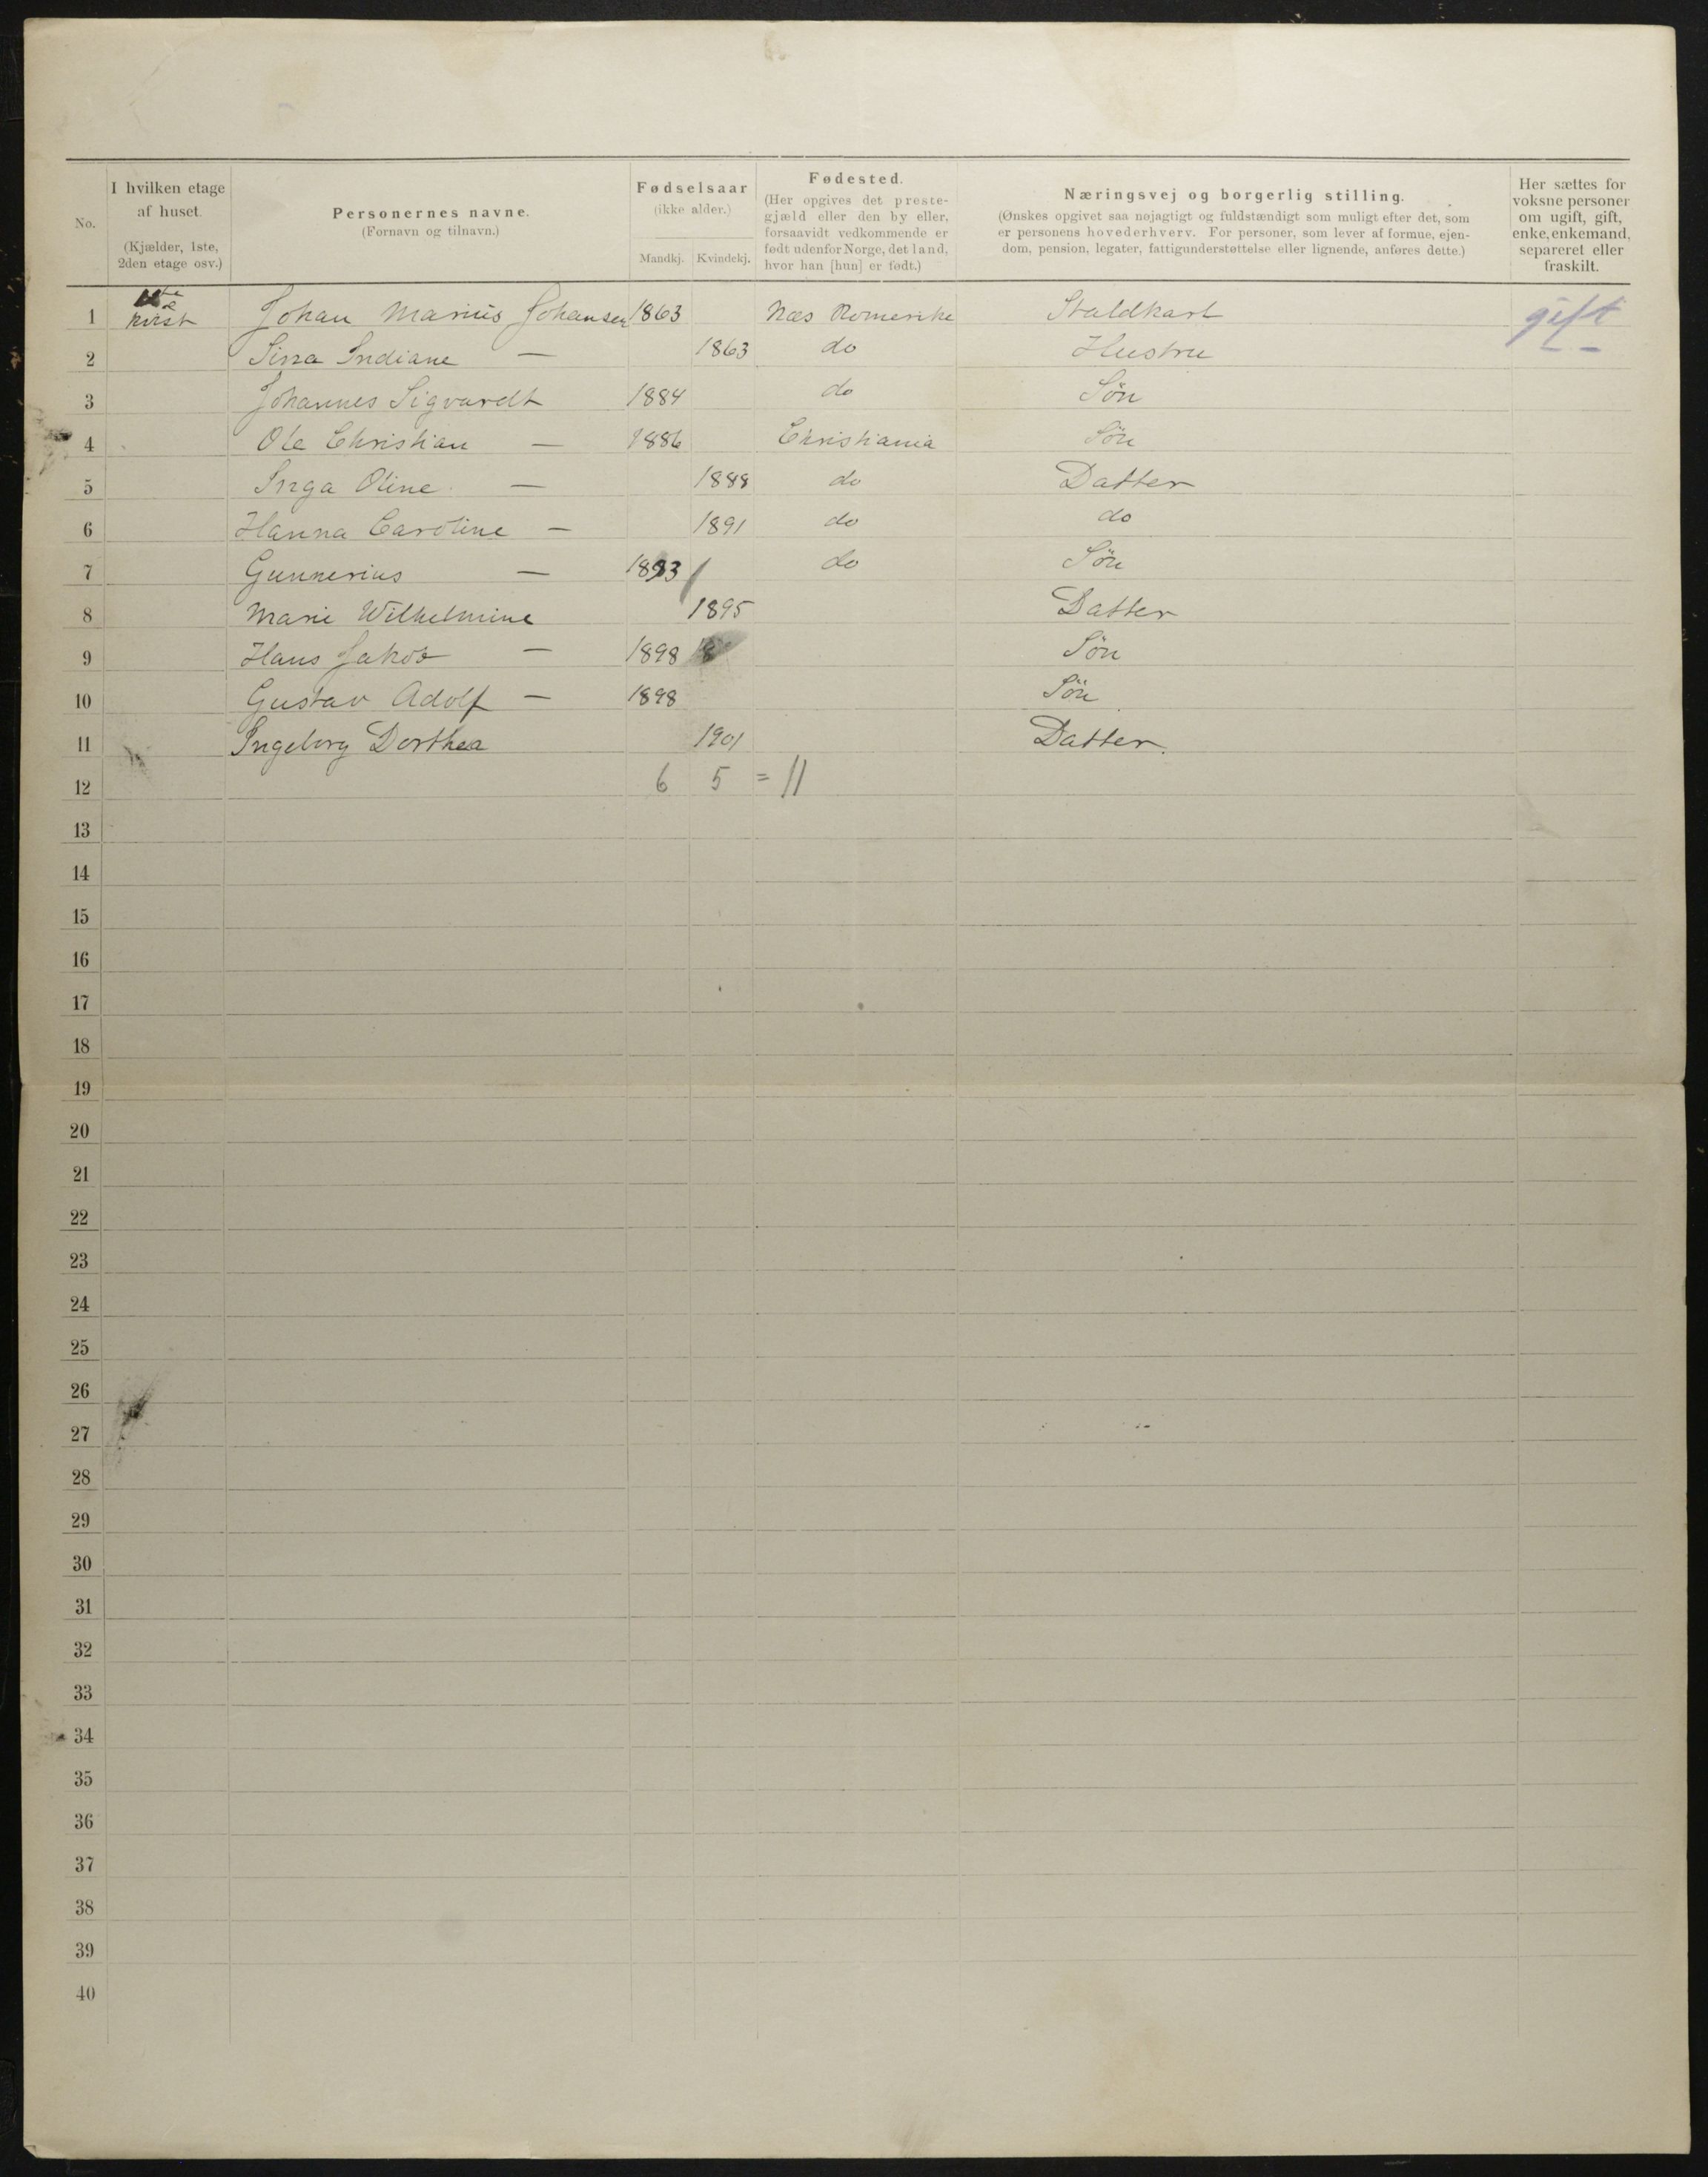 No.
I hvilken etage
af huset.
(Kjælder, 1ste,
2den etage osv.)
Personernes navne.
(Fornavn og tilnavn.)
Fødselsaar
(ikke alder.)
Mandkj. Kvindekj.
Fødested.
(Her opgives det preste-
gjæld eller den by eller,
forsaavidt vedkommende er
født udenfor Norge, det land,
hvor han [hun] er født.)
Næringsvej og borgerlig stilling.
(Ønskes opgivet saa nøjagtigt og fuldstændigt som muligt efter det, som
er personens hovederhverv. For personer, som lever af formue, ejen-
dom, pension, legater, fattigunderstøttelse eller lignende, anføres dette.)
Her sættes for
voksne personer
om ugift, gift,
enke, enkemand,
separeret eller
fraskilt.
1 kvist Johan Marius Johansen 1863 Næs Romerike Staldkarl gift
2 Sina Indiane — 1863 do Hustru —
3 Johannes Sigvardt 1884 do Søn
4 Ole Christian — 1886 Christiania Søn
5 Inga Oline — 1888 do Datter
6 Hanna Caroline — 1891 do do
7 Gunnerius — 1893 do Søn
8 Marie Wilhelmine 1895 Datter
9 Hans Jakob — 1898 Søn
10 Gustav Adolf — 1898 Søn
11 Ingeborg Dorthea 1901 Datter.
12 6 5 = 11
13
14
15
16
17
18
19
20
21
22
23
24
25
26
27
28
29
30
31
32
33
34
35
36
37
38
39
40